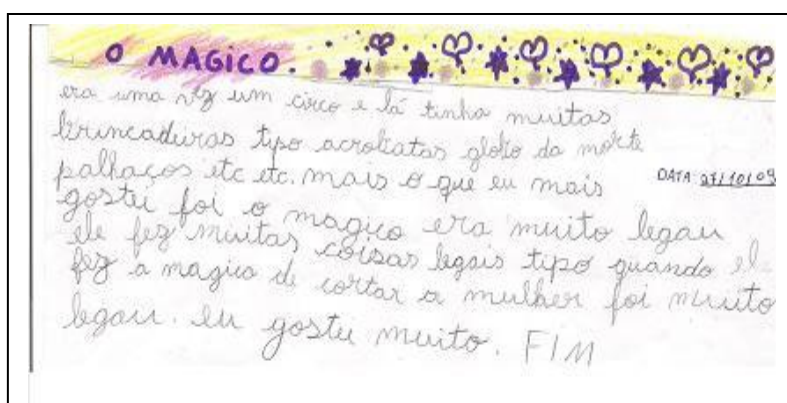 O MAGICO.
era uma vez um circo e lá tinha muitas
brincadeiras tipo acrobatas globo da morte
palhaços etc etc. mais o que eu mais
DATA 27/10/09
gostei foi o magico era muito legau
ele fez muitas coisas legais tipo quando ele
fez a magica de cortar a mulher foi muito
legau. eu gostei muito. FIM